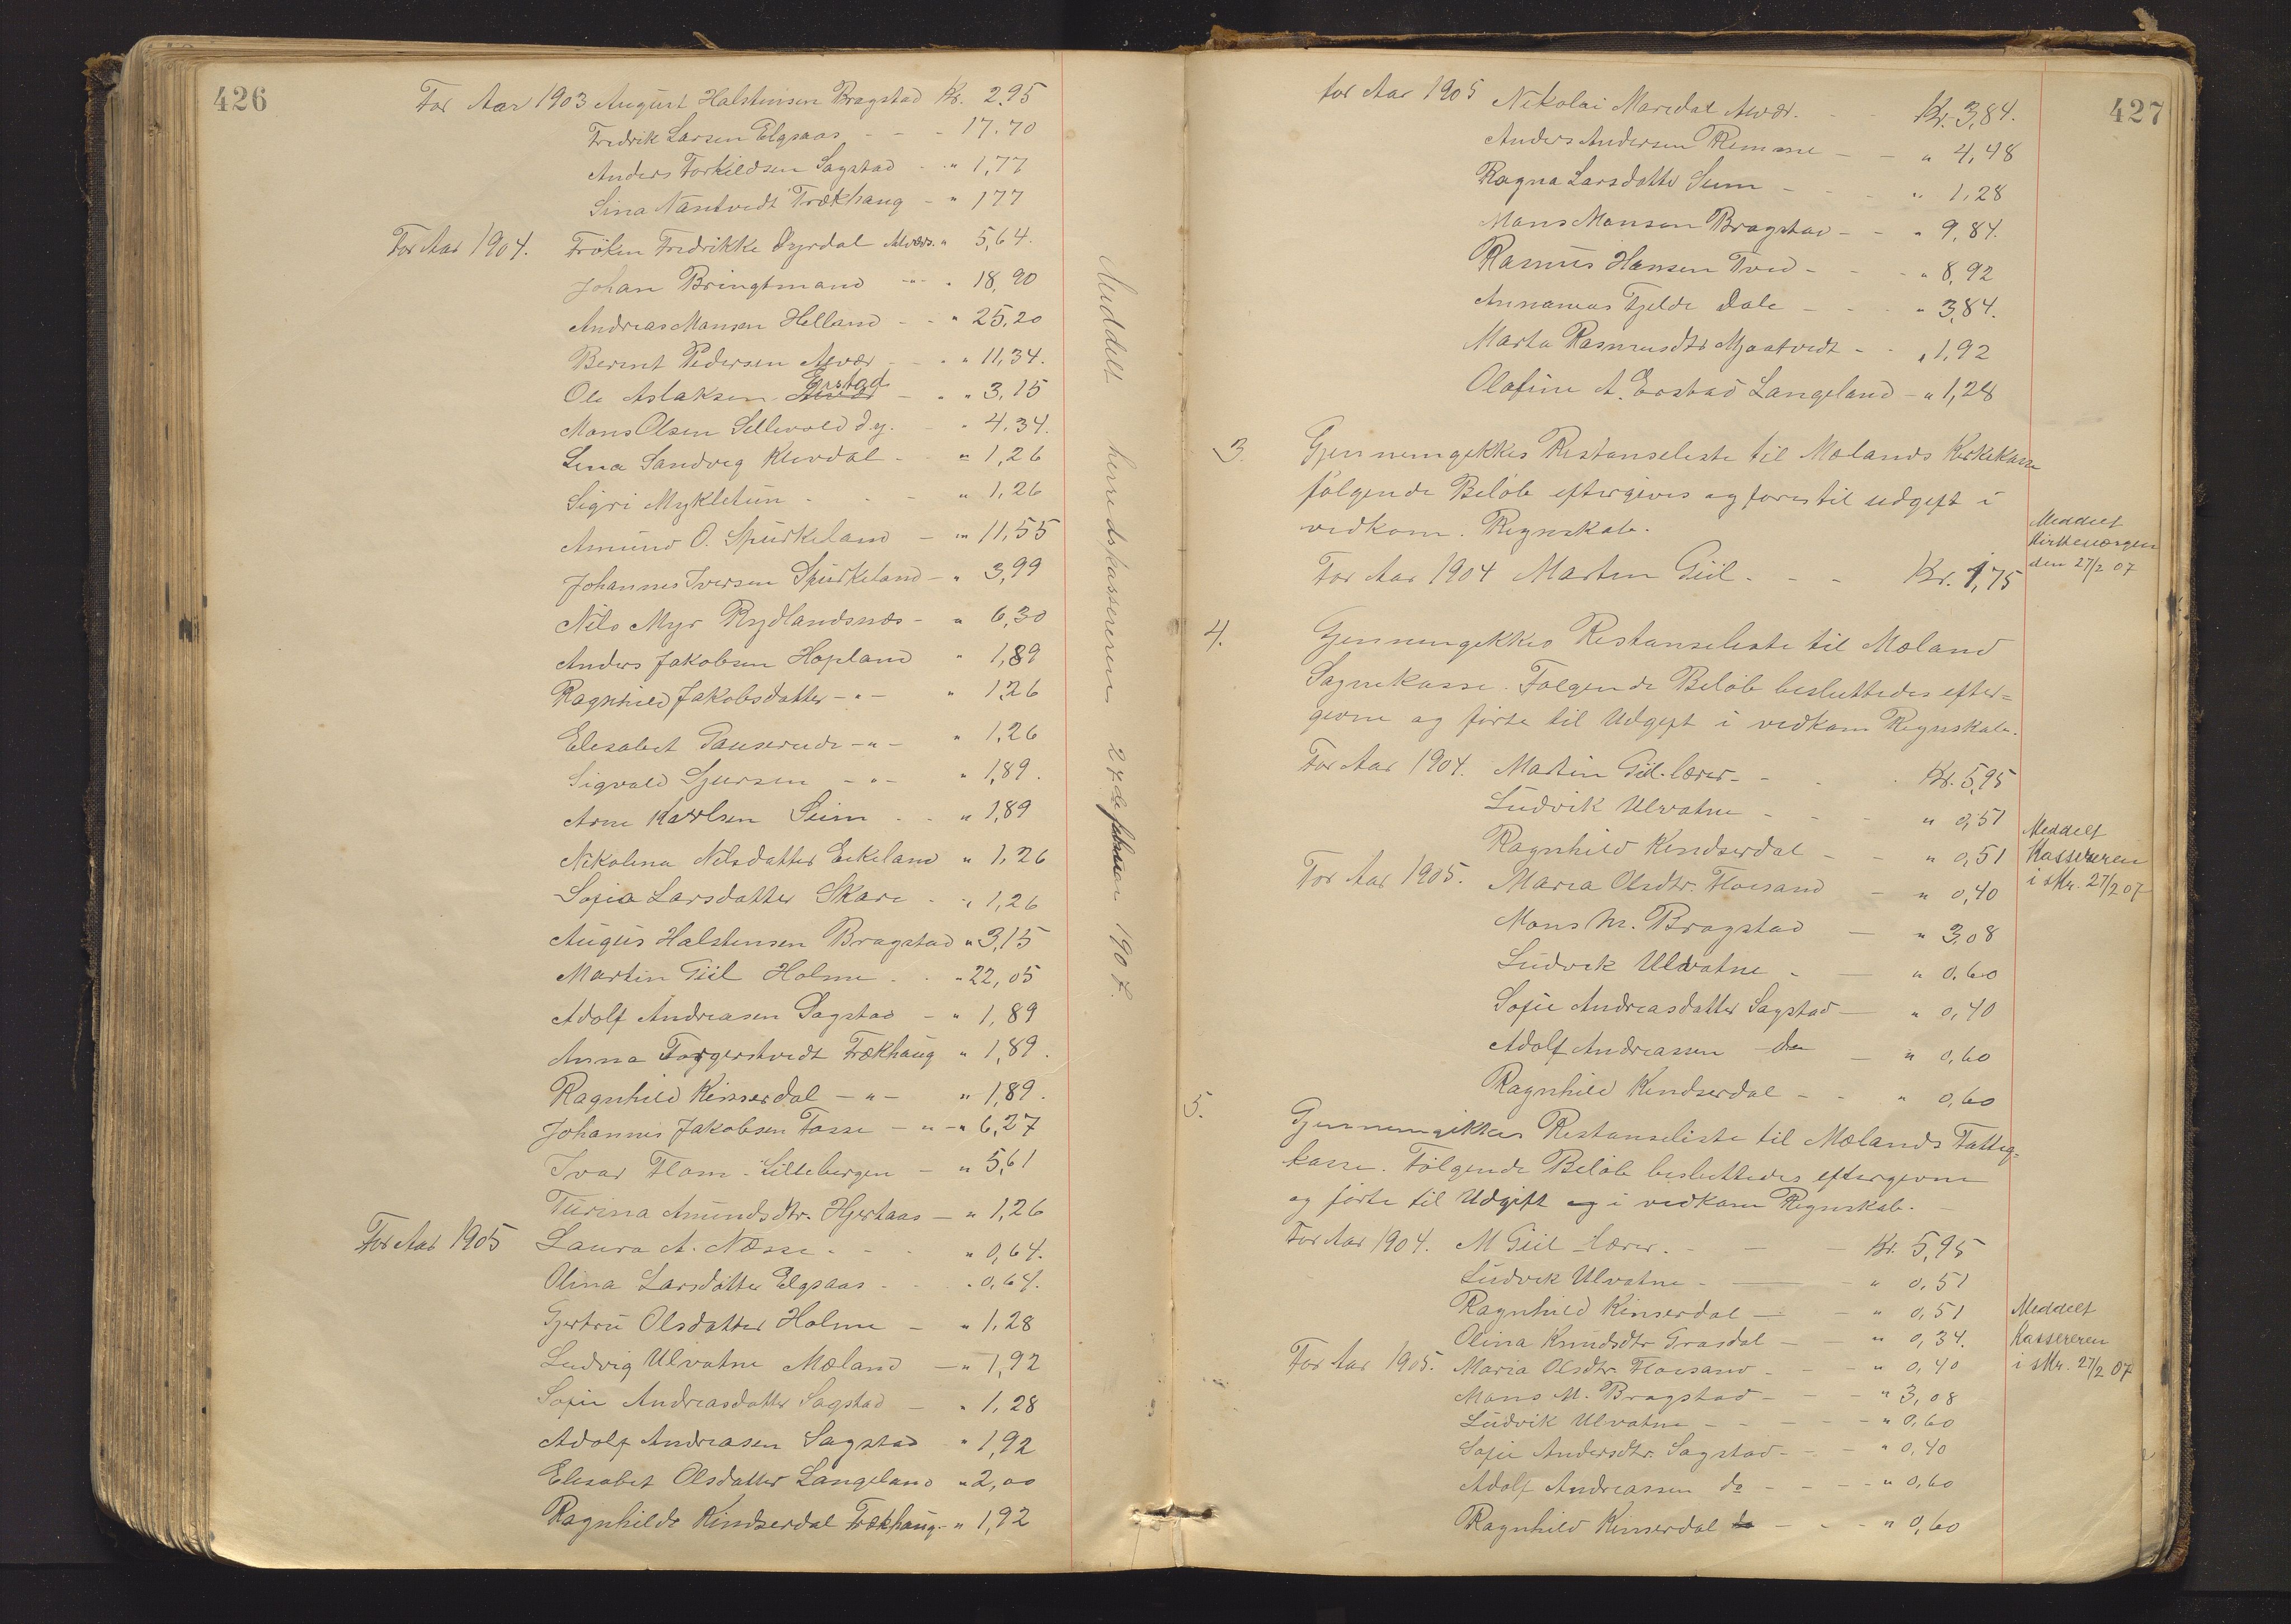 426
For Aar 1903 August Halstensen Bragstad Kr. 2,95
Fredrik Larsen Elgsaas - - - 17.70
Anders Torkildsen Sagstad - - " 1,77
Sina Næsetvedt Trækhaug - " 177
For Aar 1904. Frøken Fredrikke Dyrdal Alvær. " 5,64.
Johan Bringtmand - " - . 18,90
Andreas Mansen Helland - - " 25,20
Berent Pedersen Alvær - - " 11,34.
Ole Aslaksen Erstad - " 3,15
Mons Olsen Sellevold d.y. - " 4.34.
Lina Sandvig Klevdal - " 1,26
Sigri Mykletun - - - " 1,26
Amund O. Spurkeland - " 11,55
Johannes Iversen Spurkeland - " 3,99
Nils Myr Rydlandsnæs - " 6,30
Anders Jakobsen Hopland " 1,89
Ragnhild Jakobsdatter - " - " 1,26
Elesabet - " - " 1,26
Sigvald Sjursen - " - " 1,89.
Arne Karlsen Seim - - " 1,89
Nikolina Nilsdatter Eikeland " 1,26
Sofia Larsdatter Skare - " 1,26
Augus Halstensen Bragstad " 3,15
Martin Giil Holme - " 22,05
Adolf Andreasen Sagstad - " 1,89
Anna Torgerstvedt Trækhaug " 1,89.
Ragnhild Kinserdal - " - " 1,89.
Johannes Jakobsen Fosse - " - " 6,27
Ivar Flom - Lillebergen - " 5,61
Turina Amundsdtr. Hjertaas - " 1,26
For Aar 1905 Laura A. Næsse - - - " 0,64.
Olina Larsdatter Elgsaas - - " 0,64.
Gjertru Olsdatter Holme - " 1.28
Ludvig Ulvatne Mæland - " 1,92
Sofie Andreasdatter Sagstad - " 1,28
Adolf Andreasen Sagstad " 1,92
Elesabet Olsdatter Langeland " 2,00
Ragnhilde Kindserdal Trækhaug - " 1,92
Meddelt herredskassereren 27de februar 1907.
427
for Aar 1905 Nikolai Maredal Alvær. - - Kr. 3,84.
Anders Andersen Remme - - " 4,48
Ragna Larsdatter Seim - - " 1,28
Mons Monsen Bragstad - - " 9,84.
Rasmus Hansen Tved - - - " 8,92
Annanias Fjelde Dale - - - " 3,84.
Marta Rasmusdtr Mjaatvedt - - " 1,92
Olafine A. Erstad Langeland - " 1,28
3. Gjennemgikkes Restanseliste til Mælands Kirkekasse
følgende Beløb eftergives og føres til udgift i
vedkom. Regnskab.
For Aar 1904 Martin Giil - - - Kr. 1,75
Meddelt
Kirkeværgen
den 27/2 07
4. Gjennemgikkes Restanseliste til Mæland
Sognekasse. Følgende Beløb besluttedes efter=
givne og førte til Udgift i vedkom Regnskab.
For Aar 1904. Martin Giil. lærer - - . Kr. 5,95
Ludvik Ulvatne - - - " 0,51
Ragnhild Kindserdal - - " 0,51
For Aar 1905. Maria Olsdtr. Floisand - " 0,40
Mons M. Bragstad - " 3,08
Ludvik Ulvatne - - " 0.60
Sofie Andreasdatter Sagstad - " 0,40
Adolf Andreassen do - " 0,60
Ragnhild Kindserdal - - " 0,60
Meddelt
Kassereren
i skr. 27/2 07
5. Gjennemgikkes Restanseliste til Mælands Fattig=
kasse. Følgende Beløb besluttedes eftergivne
og førte til Udgift og i vedkom Regnskab. -
For Aar 1904. M Giil lærer. - - - Kr. 5,95
Ludvik Ulvatne - - - " 0,51
Ragnhild Kinserdal - - " 0,51
Olina Knudsdtr Grasdal - - " 0,34.
For Aar 1905. Maria Olsdtr. Floisand - - " 0,40
Mons M. Bragstad - - - " 3,08
Ludvik Ulvatne - - - - " 0,60
Sofie Andersdtr. Sagstad - - - " 0,40
Adolf Andreassen do - - - - " 0,60
Ragnhild Kinserdal do - - - " 0,60
Meddelt
Kassereren
i skr. 27/2 07